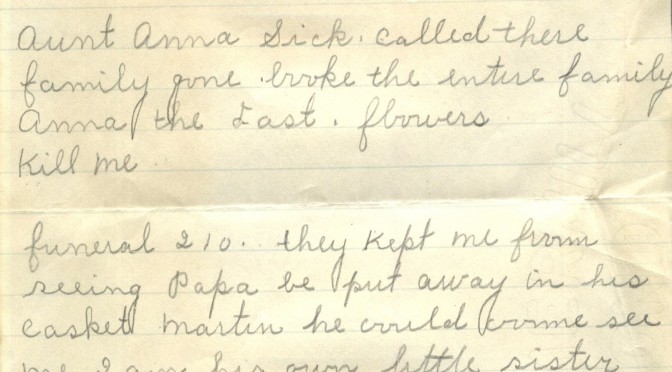 Aunt Anna Sick. called there
family gone. broke the entire family
Anna the Last. flowers
Kill me
funeral 210. they kept me from
seeing Papa be put away in his
casket Martin he could come see
me I am his own little sister